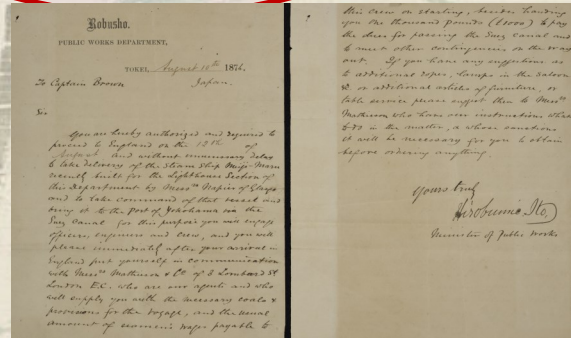 Kobusho.
PUBLIC WORKS DEPARTMENT,
TOKEI, August 10th 1874.
To Captain Brown
Japan.
Sir
You are hereby authorized and required to
proceed to England on the 12th of
August and without unnecessary delay
to take delivery of the Steam Ship Meiji Maru
recently built for the Lighthouse Section of
this Department by Messrs Napier of Glasgow
and to take command of that vessel and
bring it to the Port of Yokohama via the
Suez Canal for this purpose you will engage
officers, engineers and crew, and you will
please immediately after your arrival in
England put yourself in communication
with Messrs Matheson & Co of 3 Lombard St
London E.C. who are our agents and who
will supply you with the necessary coals &
provisions for the voyage, and the usual
amount of seamen's wages payable to
this crew on starting, besides handing
you one thousand pounds (£1000) to pay
the dues for passing the Suez canal and
to meet other contingencies on the way
out. If you have any suggestions as
to additional ropes, lamps in the saloon
& or additional articles of furniture, or
table service please suggest them to Messrs
Matheson who have our instructions what
to do in the matter, & whose sanctions
it will be necessary for you to obtain
before ordering anything.
Yours truly
Hirobumi Ito
Minister of Public Works